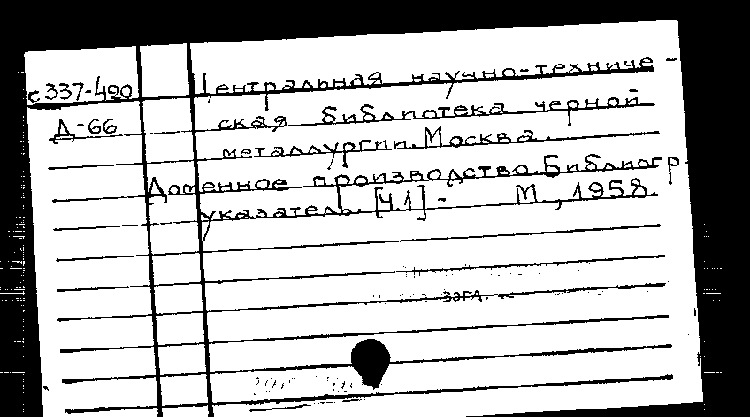 с337-490 Центральная научно-техниче-
Д-66 ская библиотека черной
металлургии. Москва.
Доменное производство. Библиогр.
указатель. [Ч.1] - М., 1958.